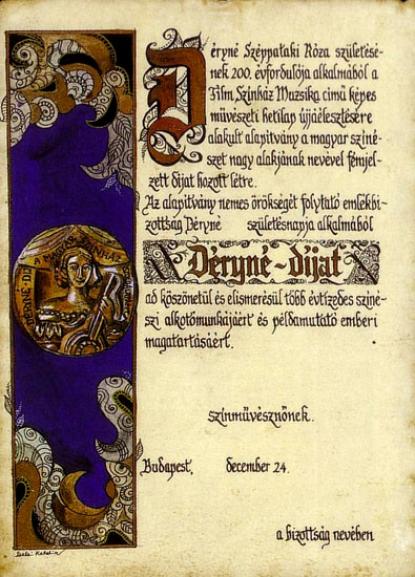 Déryné Széppataki Róza születésé-
nek 200. évfordulója alkalmából a
Film, Színház Muzsika című képes
művészeti hetilap újjáélesztésére
alakult alapítvány a magyar színé-
szet nagy alakjának nevével fémjel-
zett díjat hozott létre.
Az alapítvány nemes örökségét folytató emlékbi-
zottság Déryné születésnapja alkalmából
Déryné-díjat
ad köszönetül és elismerésül több évtizedes színé-
szi alkotómunkájáért és példamutató emberi
magatartásáért.
színművésznőnek.
Budapest, december 24.
a bizottság nevében
DÉRYNÉ-DÍJ A MAGYAR SZÍNHÁZ